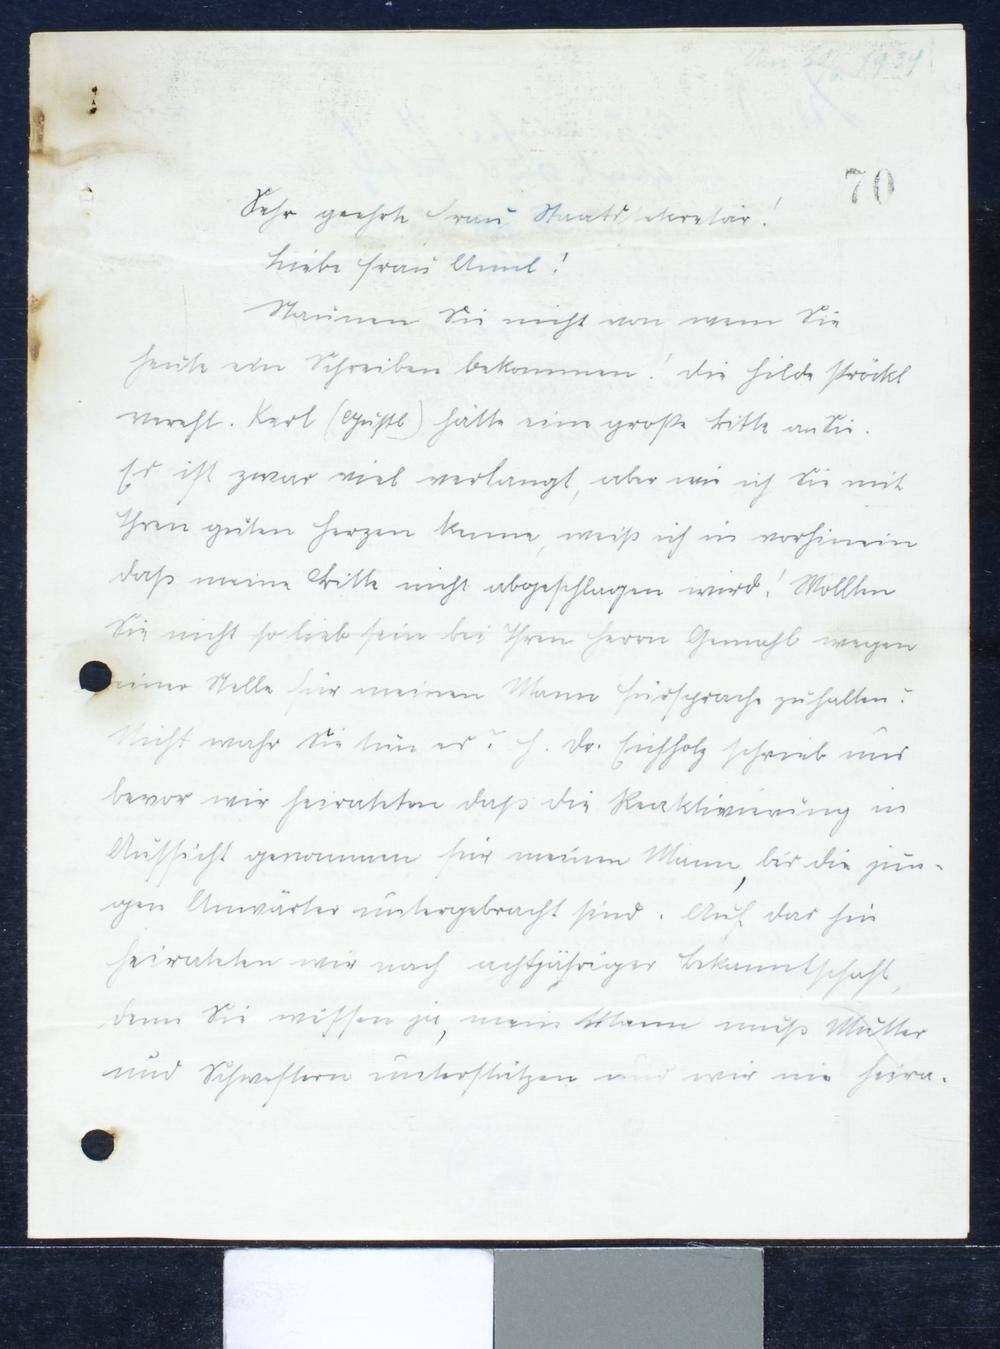 70
Sehr geehrte Frau Staatssekretär!
Liebe Frau Annl!
Staunen Sie nicht von wem Sie
heute ein Schreiben bekommen! Die Hilde Ströckl
vereht. Kerl (Gustl) hätte eine große Bitte an Sie.
Es ist zwar viel verlangt, aber wie ich Sie mit
Ihren guten Herzen kenne, weiß ich in vorhinein
daß meine Bitte nicht abgeschlagen wird! Wollten
Sie nicht so lieb sein bei Ihren Herrn Gemahl wegen
einer Stelle für meinen Mann Fürsprache zu halten?
Nicht wahr Sie tun es? H. Dr. Eichholz schrieb uns
bevor wir heirateten daß die Reaktivierung in
Aussicht genommen für meinen Mann, bis die jun-
gen Anwärter untergebracht sind. Auf das hin
heirateten wir nach achtjähriger Bekanntschaft,
denn Sie wissen ja, mein Mann muß Mutter
und Schwestern unterstützen und wir nie heira-